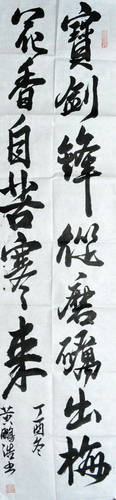 寶劍鋒從磨礪出梅
花香自苦寒來
丁酉冬
黄鵬浩書